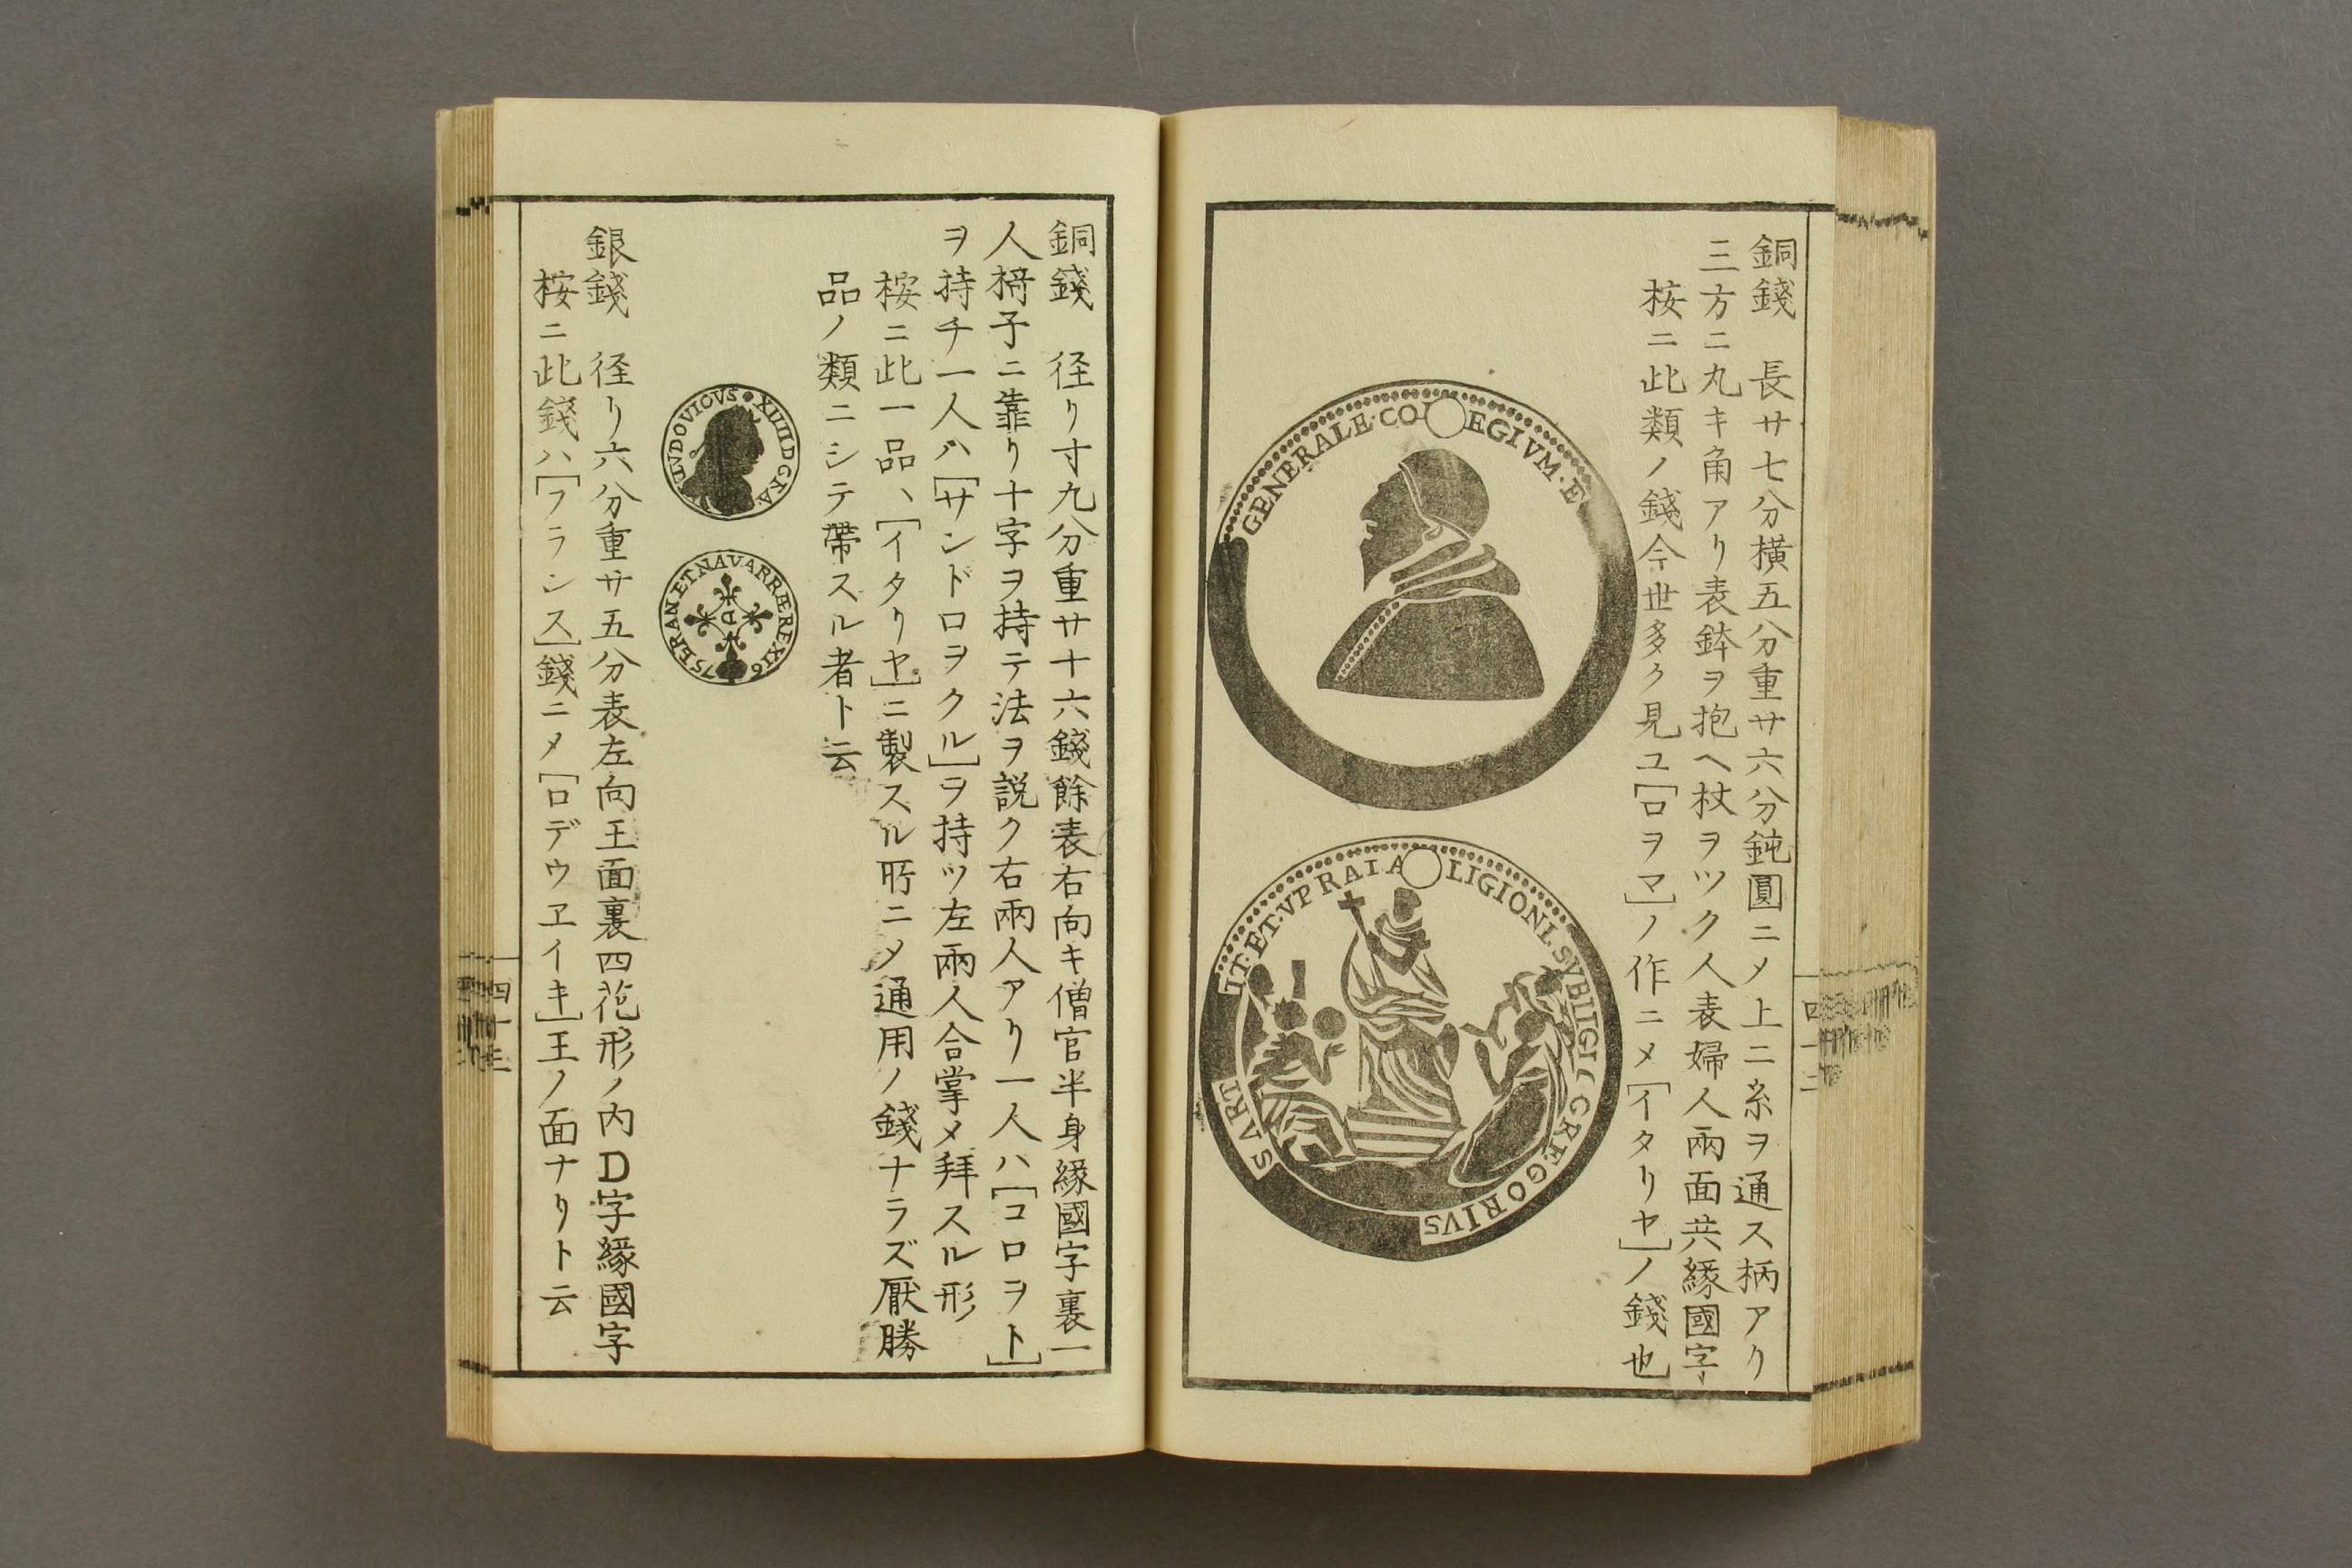 銅錢　長サ七分橫五分重サ六分鈍圓ニメ上ニ糸ヲ通ス柄アリ
三方ニ丸キ角アリ表鉢ヲ抱ヘ杖ヲツク人表婦人兩面共緣國字
桉ニ此類ノ錢今世多ク見ユ[ロヲマ]ノ作ニメ[イタリヤ]ノ錢也
GENERALE·CO EGIVM·E
IT·ET·VPRAIA LIGIONI·SVBIIGI
GREGORIVS
S ART
四十二
銅錢　径リ寸九分重サ十六錢餘表右向キ僧官半身緣國字裏一
人椅子ニ靠リ十字ヲ持テ法ヲ説ク右兩人アリ一人ハ[コロヲト]
ヲ持チ一人ハ[サンドロヲクル]ヲ持ツ左兩人合掌メ拜スル形
桉ニ此一品、[イタリヤ]ニ製スル所ニメ通用ノ錢ナラズ厭勝
品ノ類ニシテ帶スル者ト云
LVDOVICVS·XIIIIDGRA
ERANETNAVARRÆREX1675
D
銀錢　径リ六分重サ五分表左向王面裏四花形ノ内D字緣國字
桉ニ此錢ハ[フランス]錢ニメ[ロデウヱイキ]王ノ面ナリト云
四十三